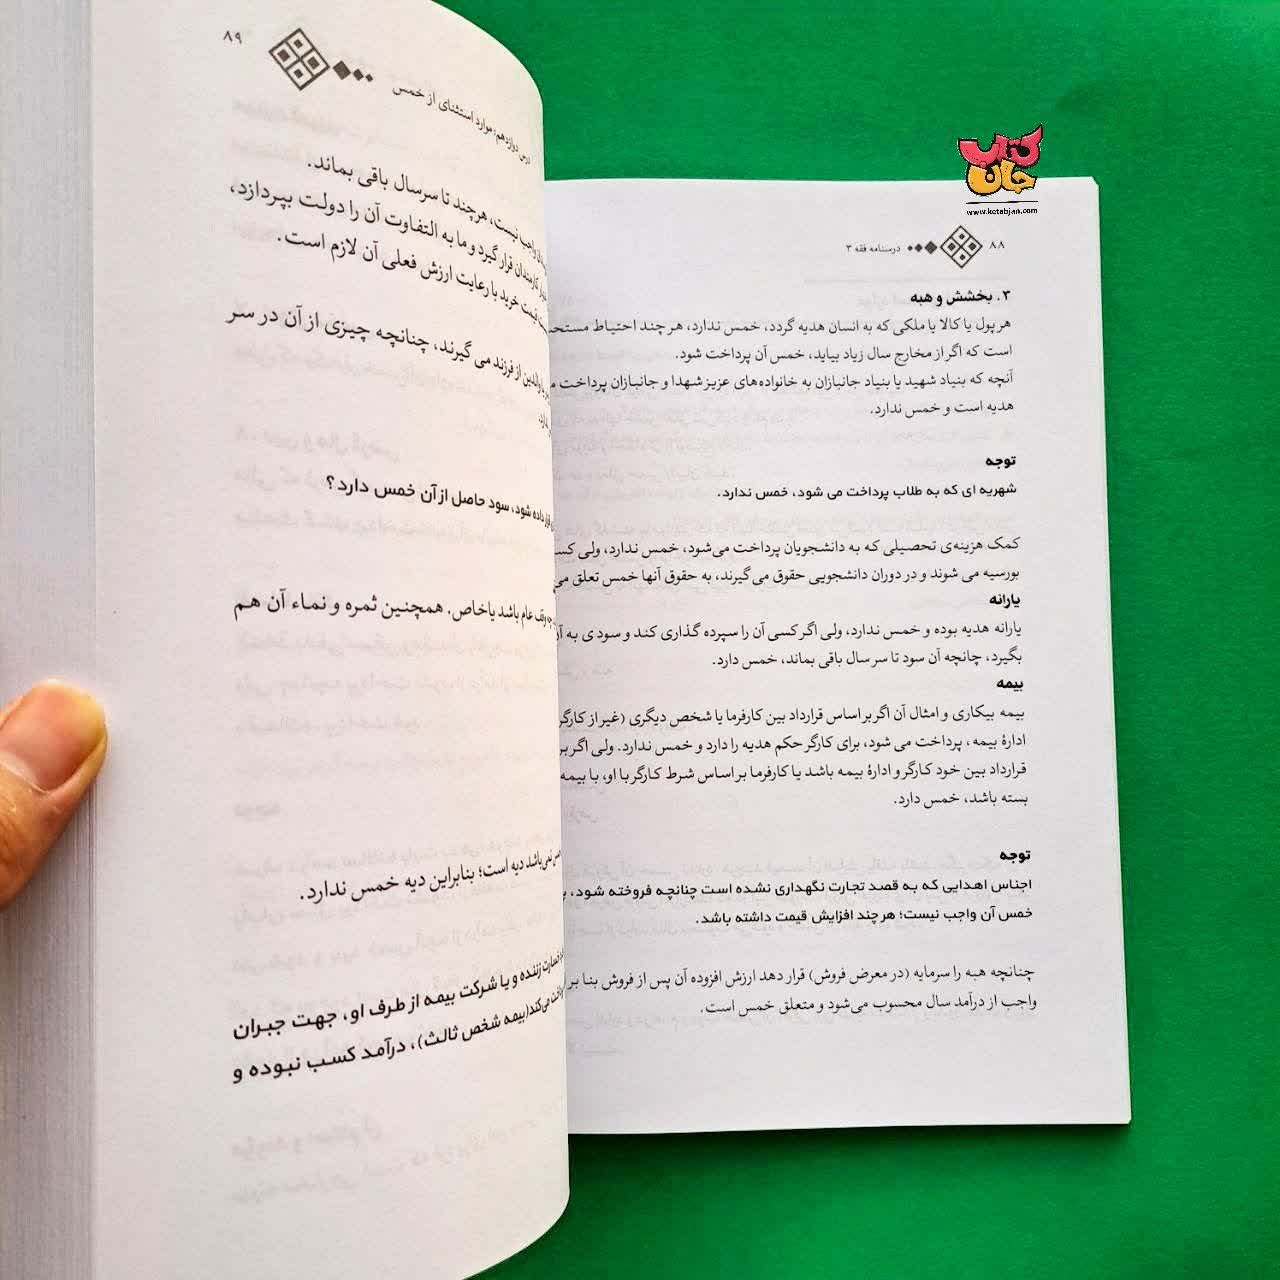 کتاب جان
www.ketabjan.com
۸۸ درسنامه فقه ۳
۳. بخشش و هبه
هر پول یا کالا یا ملکی که به انسان هدیه گردد، خمس ندارد، هر چند احتیاط مستحب
است که اگر از مخارج سال زیاد بیاید، خمس آن پرداخت شود.
آنچه که بنیاد شهید یا بنیاد جانبازان به خانواده‌های عزیز شهدا و جانبازان پرداخت
هدیه است و خمس ندارد.
توجه
شهریه ای که به طلاب پرداخت می شود، خمس ندارد.
کمک هزینه‌ی تحصیلی که به دانشجویان پرداخت می‌شود، خمس ندارد، ولی
بورسیه می شوند و در دوران دانشجویی حقوق می گیرند، به حقوق آنها خمس تعلق
یارانه
یارانه هدیه بوده و خمس ندارد، ولی اگر کسی آن را سپرده گذاری کند و سودی به
بگیرد، چانچه آن سود تا سر سال باقی بماند، خمس دارد.
بیمه
بیمه بیکاری و امثال آن اگر بر اساس قرارداد بین کارفرما یا شخص دیگری (غیر از کارگر
ادارۀ بیمه، پرداخت می شود، برای کارگر حکم هدیه را دارد و خمس ندارد. ولی اگر
قرارداد بین خود کارگر و ادارۀ بیمه باشد یا کارفرما بر اساس شرط کارگر با او، با بیمه
بسته باشد، خمس دارد.
توجه
اجناس اهدایی که به قصد تجارت نگهداری نشده است چنانچه فروخته شود،
خمس آن واجب نیست؛ هر چند افزایش قیمت داشته باشد.
چنانچه هبه را سرمایه (در معرض فروش) قرار دهد ارزش افزوده آن پس از فروش بنا بر
واجب از درآمد سال محسوب می‌شود و متعلق خمس است.
درس دوازدهم: موارد استثنای از خمس ۸۹
واجب نیست، هرچند تا سر سال باقی بماند.
کارمندان قرار گیرد و ما به التفاوت آن را دولت بپردازد،
قیمت خرید با رعایت ارزش فعلی آن لازم است.
یا والدین از فرزند می گیرند، چنانچه چیزی از آن در سر
داده شود، سود حاصل از آن خمس دارد؟
وقف عام باشد یا خاص. همچنین ثمره و نماء آن هم
نمی‌باشد دیه است؛ بنابراین دیه خمس ندارد.
زننده و یا شرکت بیمه از طرف او، جهت جبران
می‌کند (بیمه شخص ثالث)، درآمد کسب نبوده و